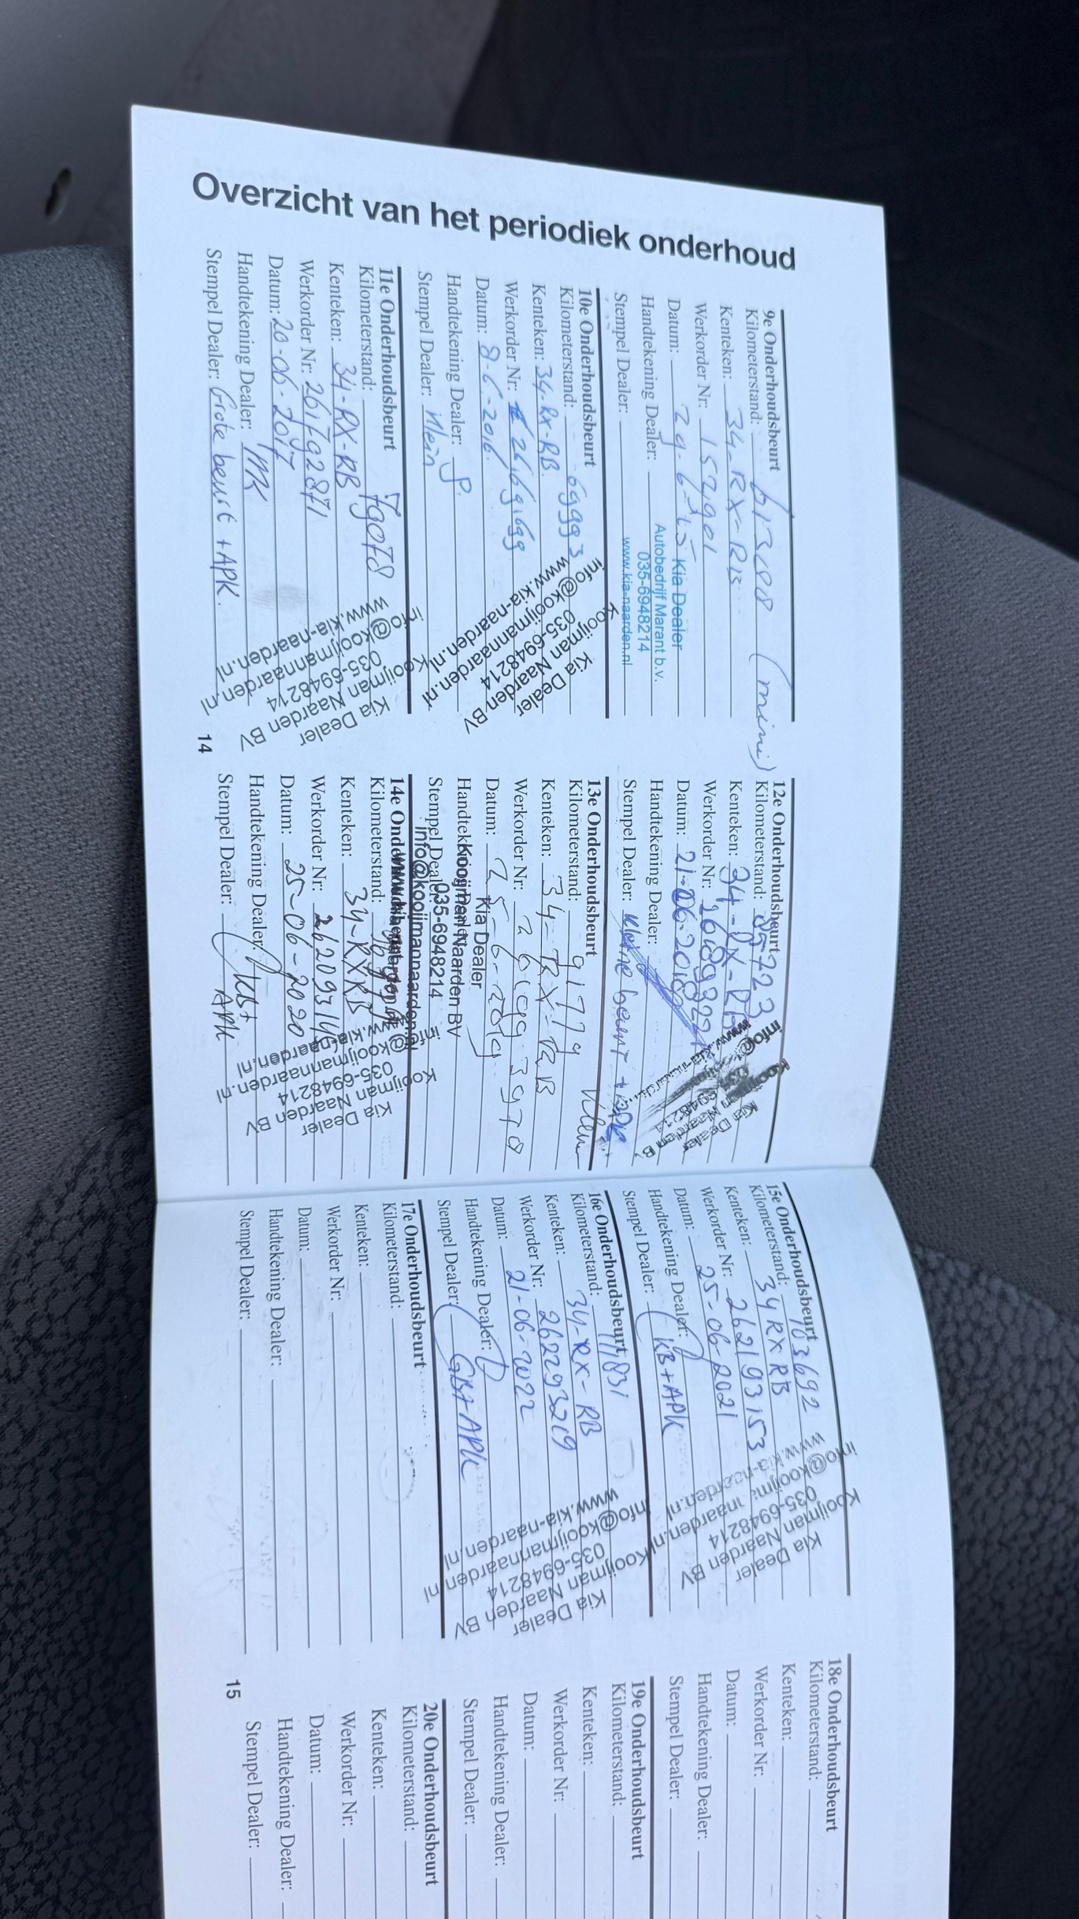 Overzicht van het periodiek onderhoud
9e Onderhoudsbeurt
Kilometerstand: (mini)
Kenteken: 34-RX-RB
Werkorder Nr: 152901
Datum: 29-6-15
Handtekening Dealer:
Stempel Dealer:
Kia Dealer
Autobedrijf Marant b.v.
035-6948214
www.kia-naarden.nl
10e Onderhoudsbeurt
Kilometerstand: 69993
Kenteken: 34-RX-RB
Werkorder Nr:
Datum: 8-6-2016
Handtekening Dealer:
Stempel Dealer: klein
Kia Dealer
Kooijman Naarden BV
035-6948214
info@kooijmannaarden.nl
www.kia-naarden.nl
11e Onderhoudsbeurt
Kilometerstand: 79078
Kenteken: 34-RX-RB
Werkorder Nr: 26792871
Datum: 20-06-2017
Handtekening Dealer:
Stempel Dealer: Grote beurt + APK.
Kia Dealer
Kooijman Naarden BV
035-6948214
info@kooijmannaarden.nl
www.kia-naarden.nl
14
12e Onderhoudsbeurt
Kilometerstand: 85723
Kenteken: 34-RX-RB
Werkorder Nr:
Datum: 21-06-2018
Handtekening Dealer:
Stempel Dealer: kleine beurt + APK
Kia Dealer
13e Onderhoudsbeurt
Kilometerstand: 91779
Kenteken: 34-RX-RB
Werkorder Nr:
Datum: 25-6-2019
Handtekening Dealer:
Stempel Dealer:
Kia Dealer
Kooijman Naarden BV
035-6948214
info@kooijmannaarden.nl
www.kia-naarden.nl
14e Onderhoudsbeurt
Kilometerstand:
Kenteken: 34-RXRB
Werkorder Nr: 26209314
Datum: 25-06-2020
Handtekening Dealer:
Stempel Dealer: APK
Kia Dealer
Kooijman Naarden BV
035-6948214
info@kooijmannaarden.nl
www.kia-naarden.nl
15e Onderhoudsbeurt
Kilometerstand: 103692
Kenteken: 34 RX RB
Werkorder Nr: 262193153
Datum: 25-06-2021
Handtekening Dealer:
Stempel Dealer: KB+APK
Kia Dealer
Kooijman Naarden BV
035-6948214
info@kooijmannaarden.nl
www.kia-naarden.nl
16e Onderhoudsbeurt
Kilometerstand: 111831
Kenteken: 34-RX-RB
Werkorder Nr: 262293219
Datum: 21-06-2022
Handtekening Dealer:
Stempel Dealer: GB+APK
Kia Dealer
Kooijman Naarden BV
035-6948214
info@kooijmannaarden.nl
www.kia-naarden.nl
17e Onderhoudsbeurt
Kilometerstand:
Kenteken:
Werkorder Nr:
Datum:
Handtekening Dealer:
Stempel Dealer:
15
18e Onderhoudsbeurt
Kilometerstand:
Kenteken:
Werkorder Nr:
Datum:
Handtekening Dealer:
Stempel Dealer:
19e Onderhoudsbeurt
Kilometerstand:
Kenteken:
Werkorder Nr:
Datum:
Handtekening Dealer:
Stempel Dealer:
20e Onderhoudsbeurt
Kilometerstand:
Kenteken:
Werkorder Nr:
Datum:
Handtekening Dealer:
Stempel Dealer: